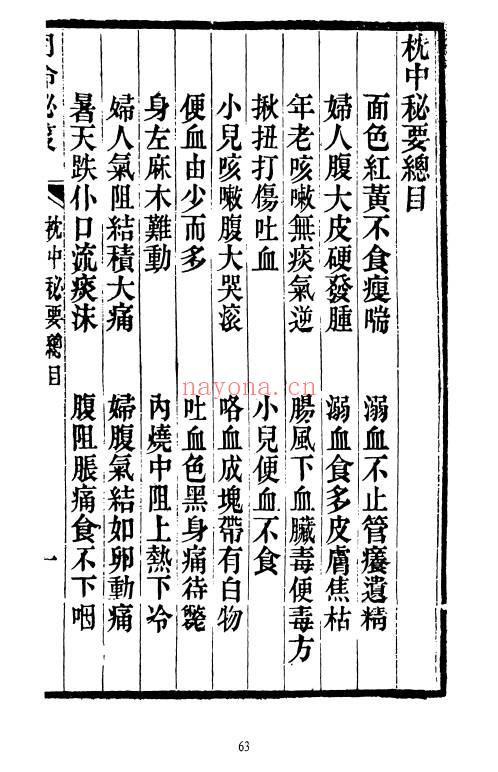 枕中秘要總目
面色紅黃不食瘦喘 溺血不止管癢遺精
婦人腹大皮硬發腫 溺血食多皮膚焦枯
年老咳嗽無痰氣逆 腸風下血臟毒便毒方
揪扭打傷吐血 小兒便血不食
小兒咳嗽腹大哭滾 咯血成塊帶有白物
便血由少而多 吐血色黑身痛待斃
身左麻木難動 內燒中阻上熱下冷
婦人氣阻結積大痛 婦腹氣結如卵動痛
暑天跌仆口流痰沫 腹阻脹痛食不下咽
枕中秘要總目 一
nayona.cn
63